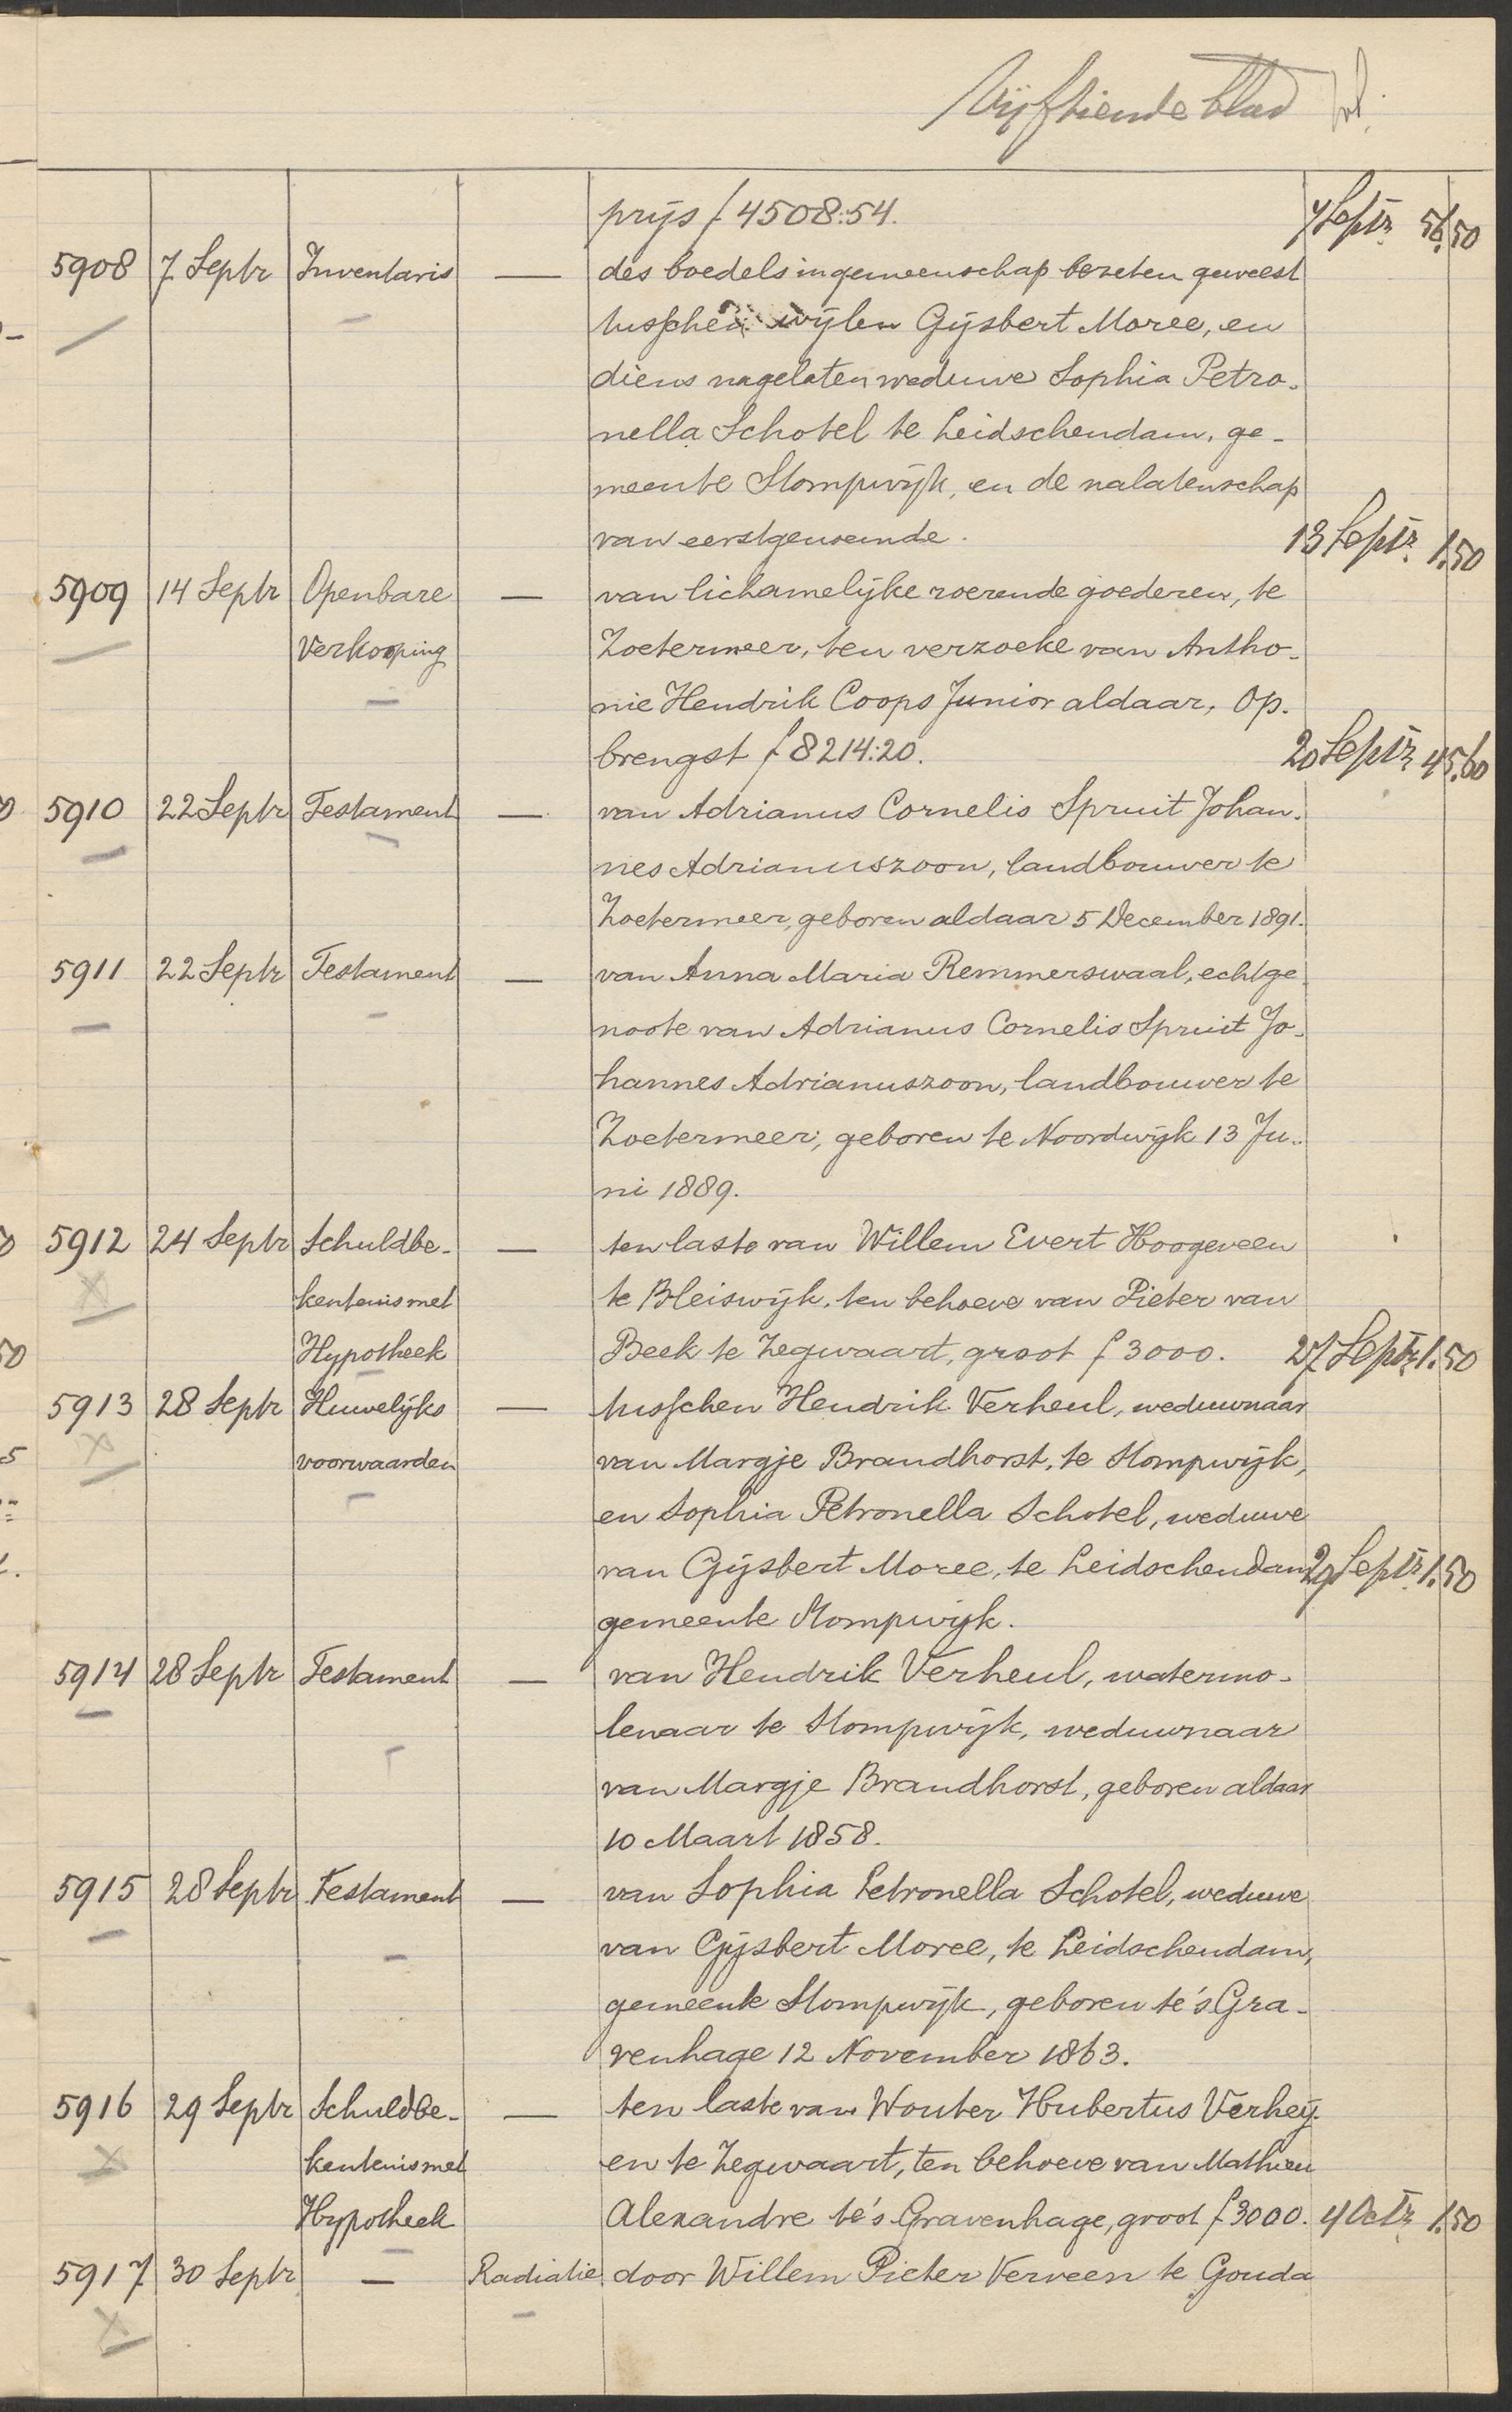 Vijftiende blad
prijs f 4508:54. 7 Septr 56.50
5908 7 Septr Inventaris — des boedels in gemeenschap bezeten geweest
tusschen wijlen Gijsbert Moree, en
diens nagelaten weduwe Sophia Petro-
nella Schotel te Leidschendam, ge-
meente Stompwijk, en de nalatenschap
van eerstgenoemde. 13 Septr 1.50
5909 14 Septr Openbare — van lichamelijke roerende goederen, te
Verkooping Zoetermeer, ten verzoeke van Antho-
nie Hendrik Coops Junior aldaar, Op-
brengst f 8214:20. 20 Septr 45.60
5910 22 Septr Testament — van Adrianus Cornelis Spruit Johan-
nes Adrianuszoon, landbouwer te
Zoetermeer, geboren aldaar 5 December 1891.
5911 22 Septr Testament — van Anna Maria Remmerswaal, echtge-
noote van Adrianus Cornelis Spruit Jo-
hannes Adrianuszoon, landbouwer te
Zoetermeer, geboren te Noordwijk 13 Ju-
ni 1889.
5912 24 Septr Schuldbe- — ten laste van Willem Evert Hoogeveen
kentenis met te Bleiswijk, ten behoeve van Pieter van
Hypotheek Beek te Zegwaart, groot f 3000. 27 Septr 1.50
5913 28 Septr Huwelijks — tusschen Hendrik Verheul, weduwnaar
voorwaarden van Margje Brandhorst, te Stompwijk,
en Sophia Petronella Schotel, weduwe
van Gijsbert Moree, te Leidschendam 29 Septr 1.50
gemeente Stompwijk.
5914 28 Septr Testament — van Hendrik Verheul, watermo-
lenaar te Stompwijk, weduwnaar
van Margje Brandhorst, geboren aldaar
10 Maart 1858.
5915 28 Septr Testament — van Sophia Petronella Schotel, weduwe
van Gijsbert Moree, te Leidschendam,
gemeente Stompwijk, geboren te 's Gra-
venhage 12 November 1863.
5916 29 Septr Schuldbe- — ten laste van Wouter Hubertus Verheij-
kentenis met en te Zegwaart, ten behoeve van Mathieu
Hypotheek Alexandre te 's Gravenhage, groot f 3000. 4 Octr 1.50
5917 30 Septr — Radiatie door Willem Pieter Verveen te Gouda